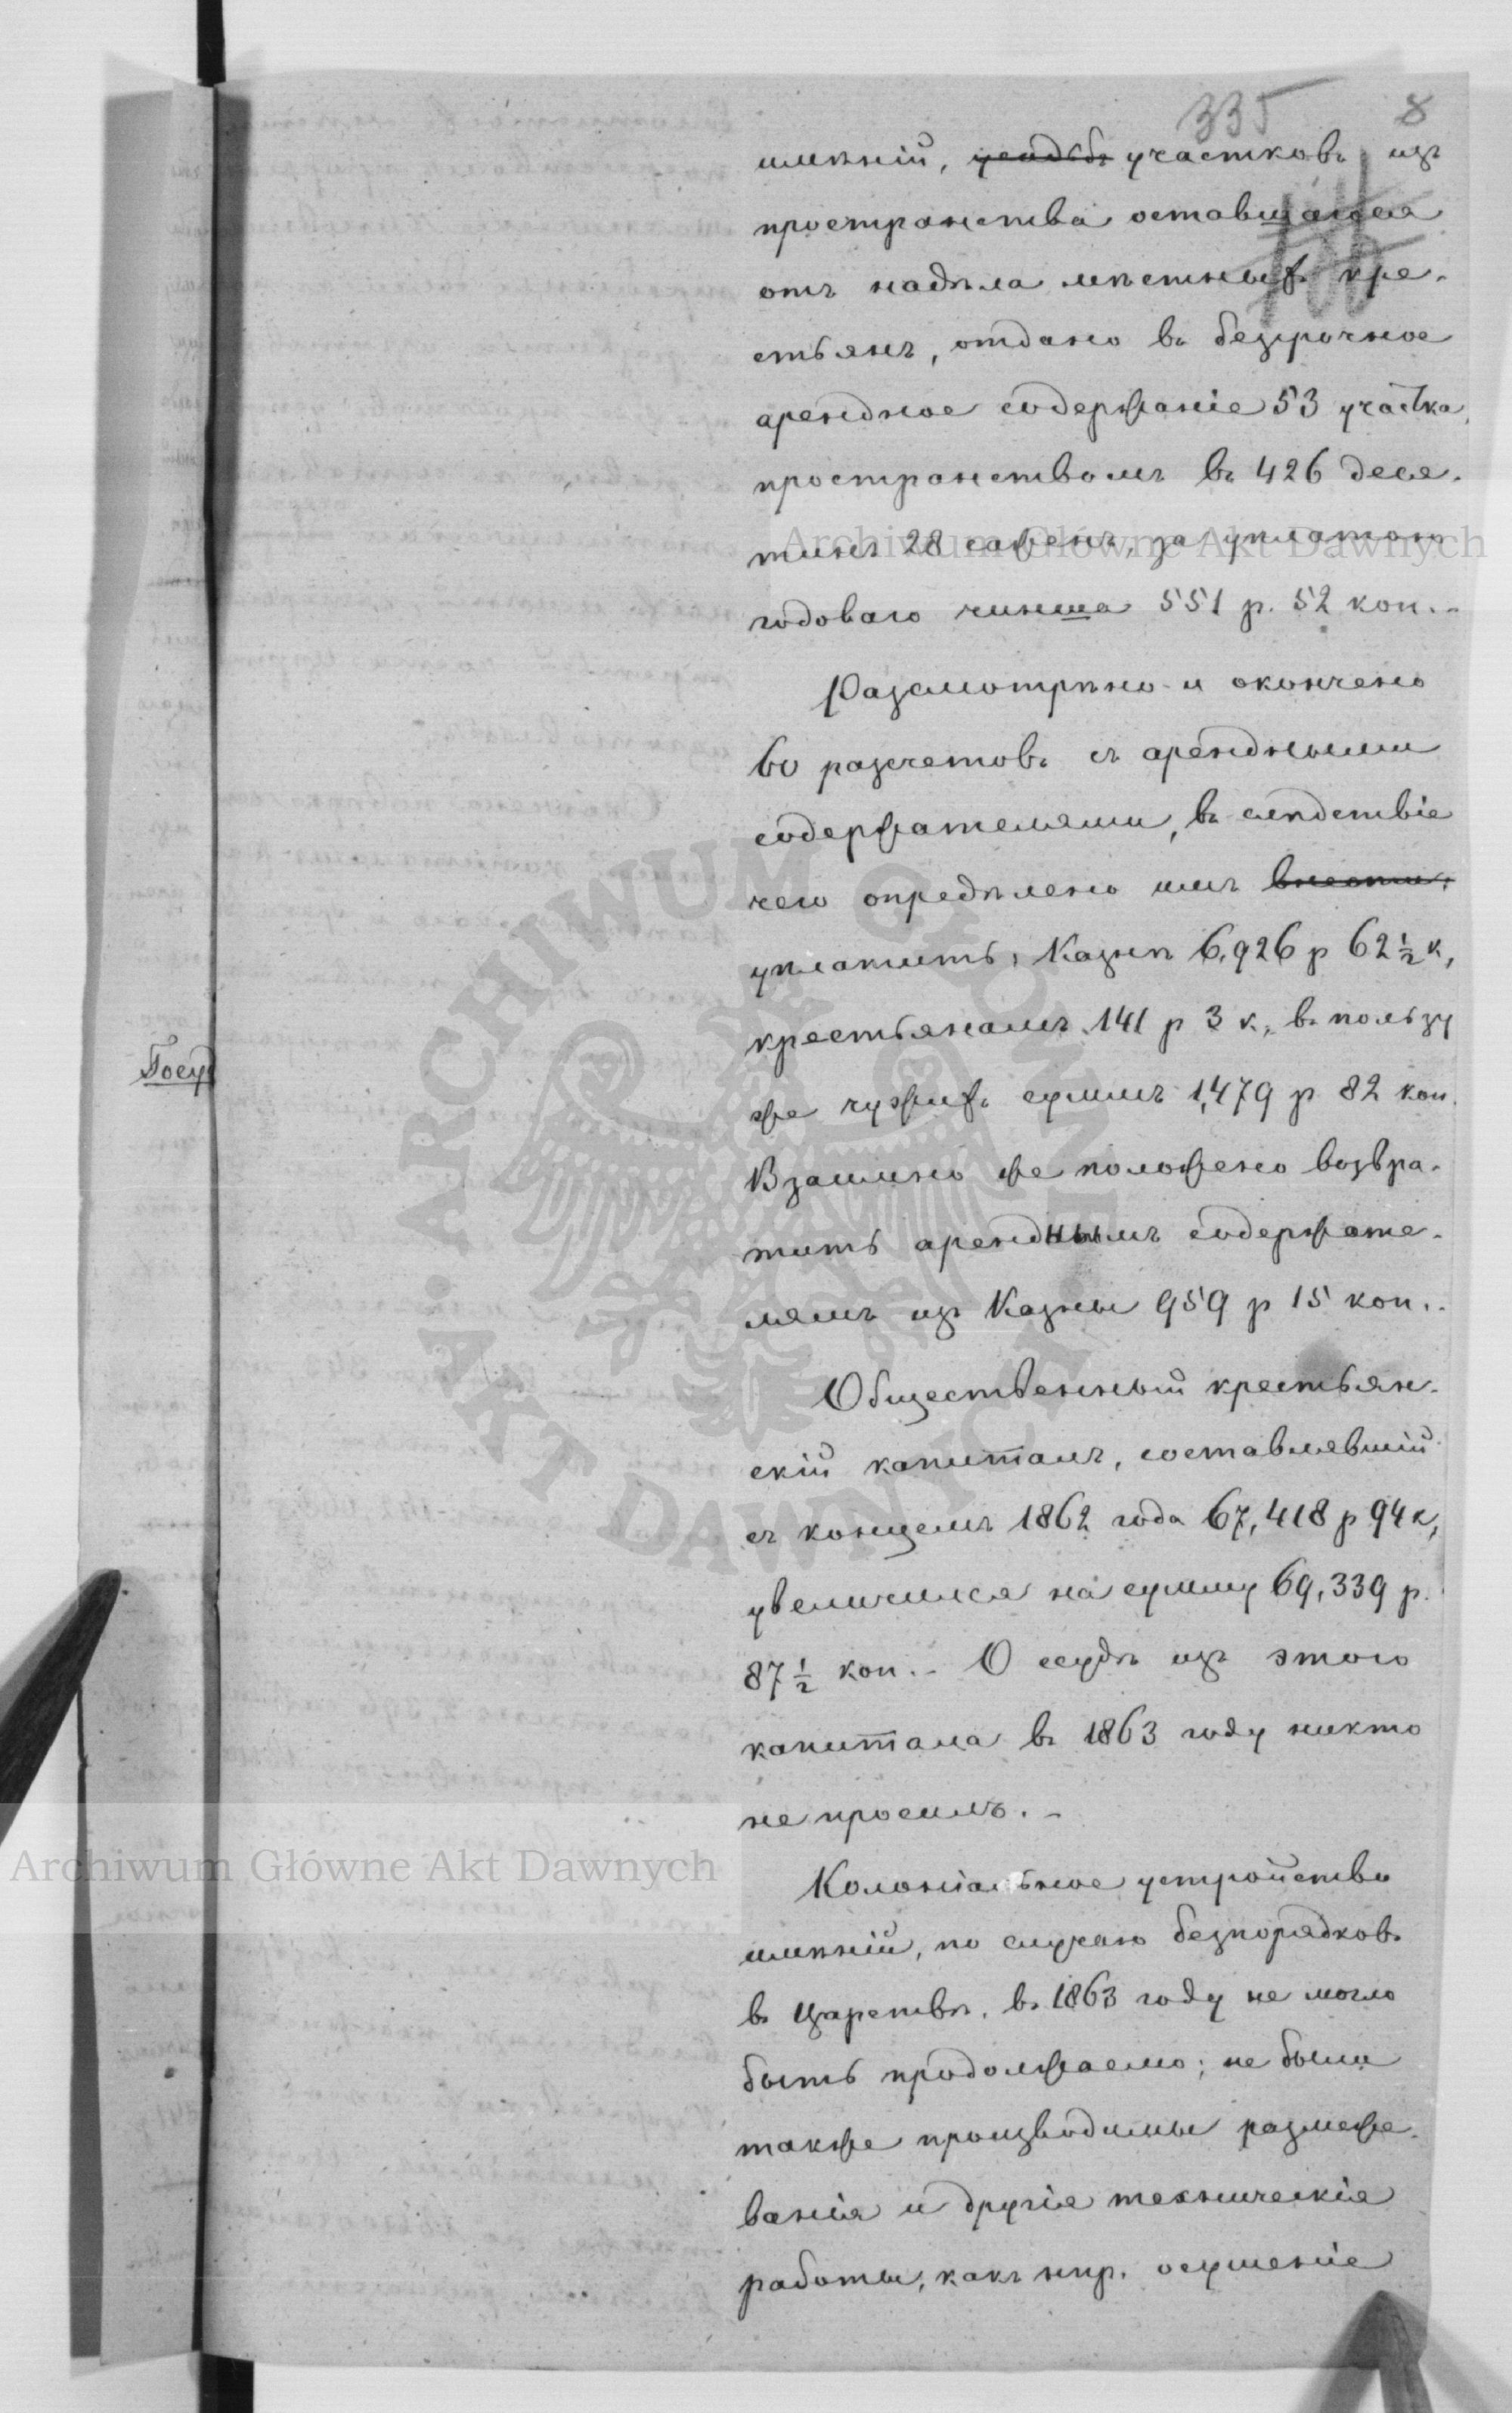 335 8
имѣній, усадьбъ участковъ изъ
пространства оставшагося
отъ надѣла мѣстныхъ кре-
стьянъ, отдано въ безсрочное
арендное содержаніе 53 участка,
пространствомъ въ 426 деся-
тинъ 28 сажень, за уплатою
годоваго чинша 551 р. 52 коп.-
Разсмотрѣно и окончено
60 разсчетовъ съ арендными
содержателями, въ слѣдствіе
чего опредѣлено имъ внести:
уплатить: Казнѣ 6,926 р 62 ½ к,
крестьянамъ 141 р 3 к., въ пользу
же чужихъ суммъ 1,479 р 82 коп.
Взаимно же положено возвра-
тить аренднымъ содержате-
лямъ изъ Казны 959 р 15 коп.-
Общественный крестьян-
скій капиталъ, составлявшій
съ концемъ 1862 года 67,418 р 94 к,
увеличился на сумму 69,339 р.
87 ½ коп.- О ссудѣ изъ этого
капитала въ 1863 году никто
не просилъ.-
Колоніальное устройство
имѣній, по случаю безпорядковъ
въ Царствѣ, въ 1863 году не могло
быть продолжаемо; не были
также производимы размеже-
ванія и другія техническія
работы, какъ нпр. осушеніе
Госуд
Archiwum Główne Akt Dawnych
ARCHIWUM GŁÓWNE AKT DAWNYCH
Archiwum Główne Akt Dawnych